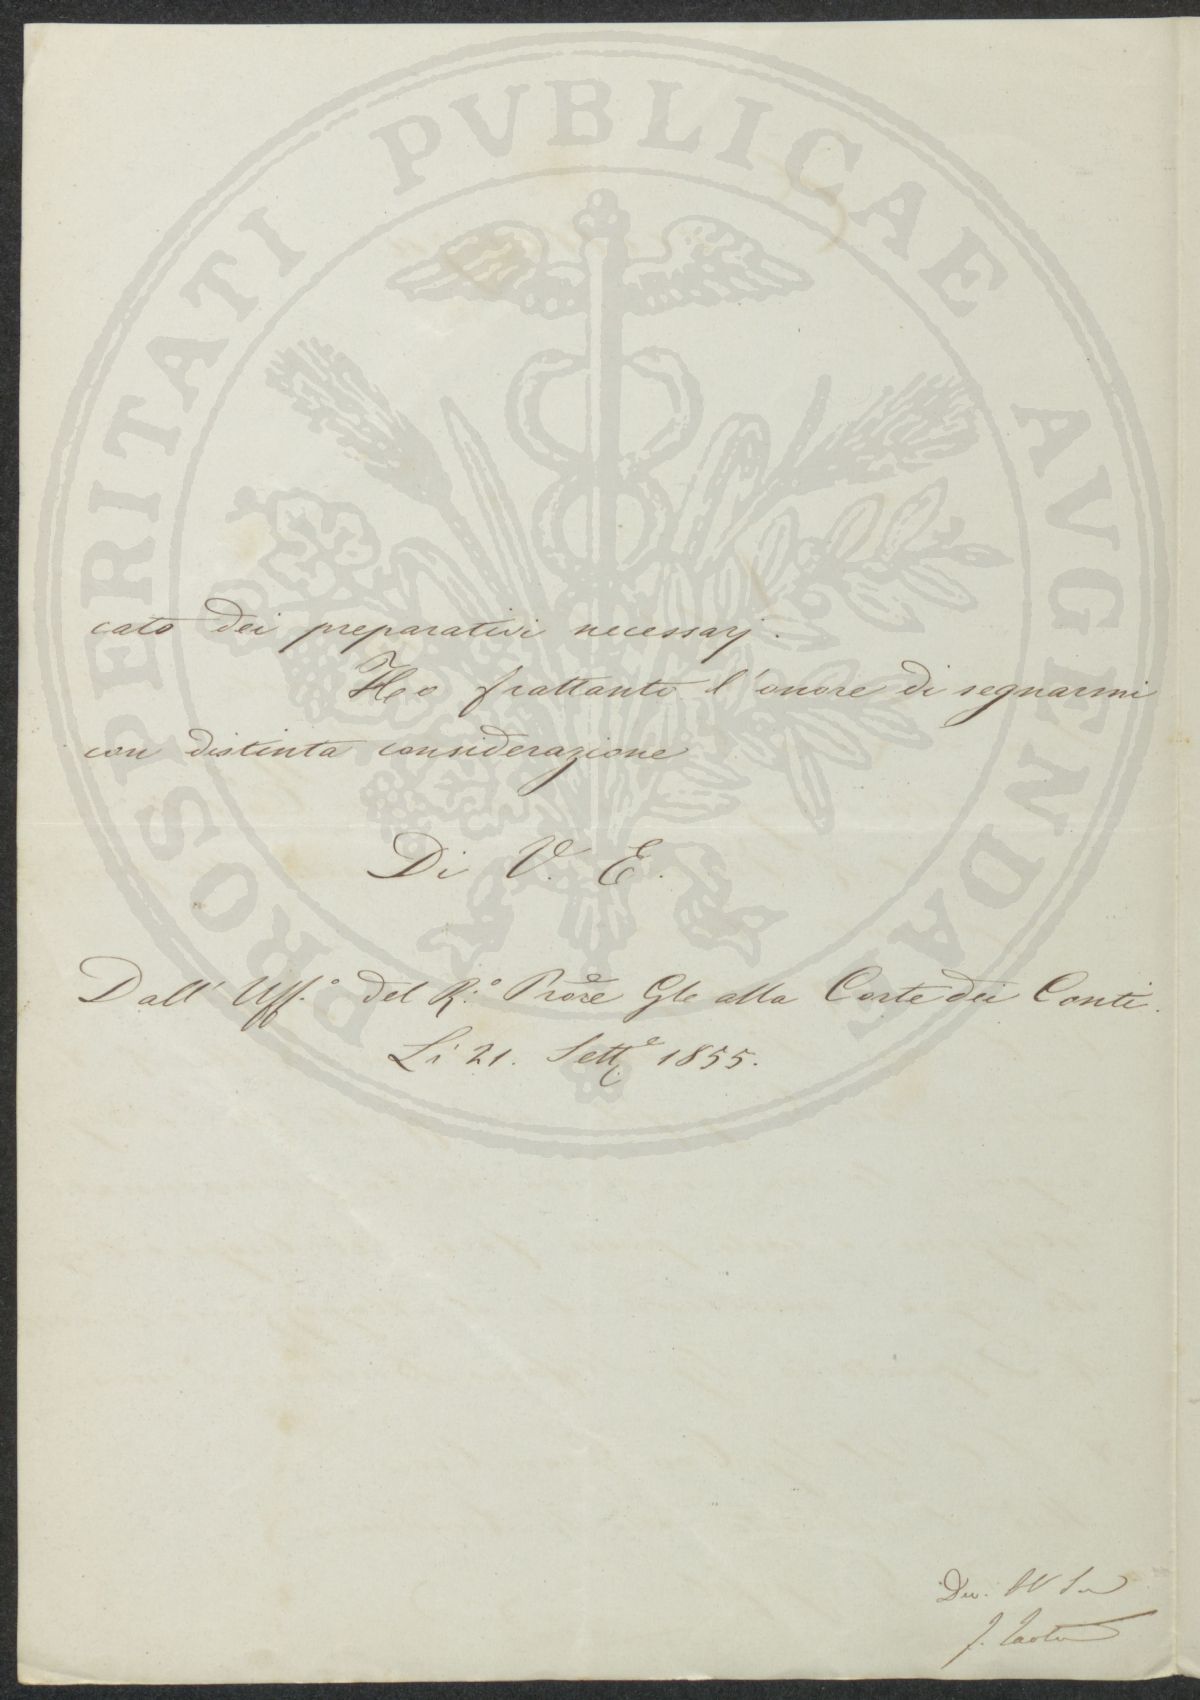 PROSPERITATI PVBLICAE AVGENDAE
cato dei preparativi necessarj.
Ho frattanto l'onore di segnarmi
con distinta considerazione
Di V. E.
Dall' Uff.° del R.° Prore Gle alla Corte dei Conti.
Li 21. Sette 1855.